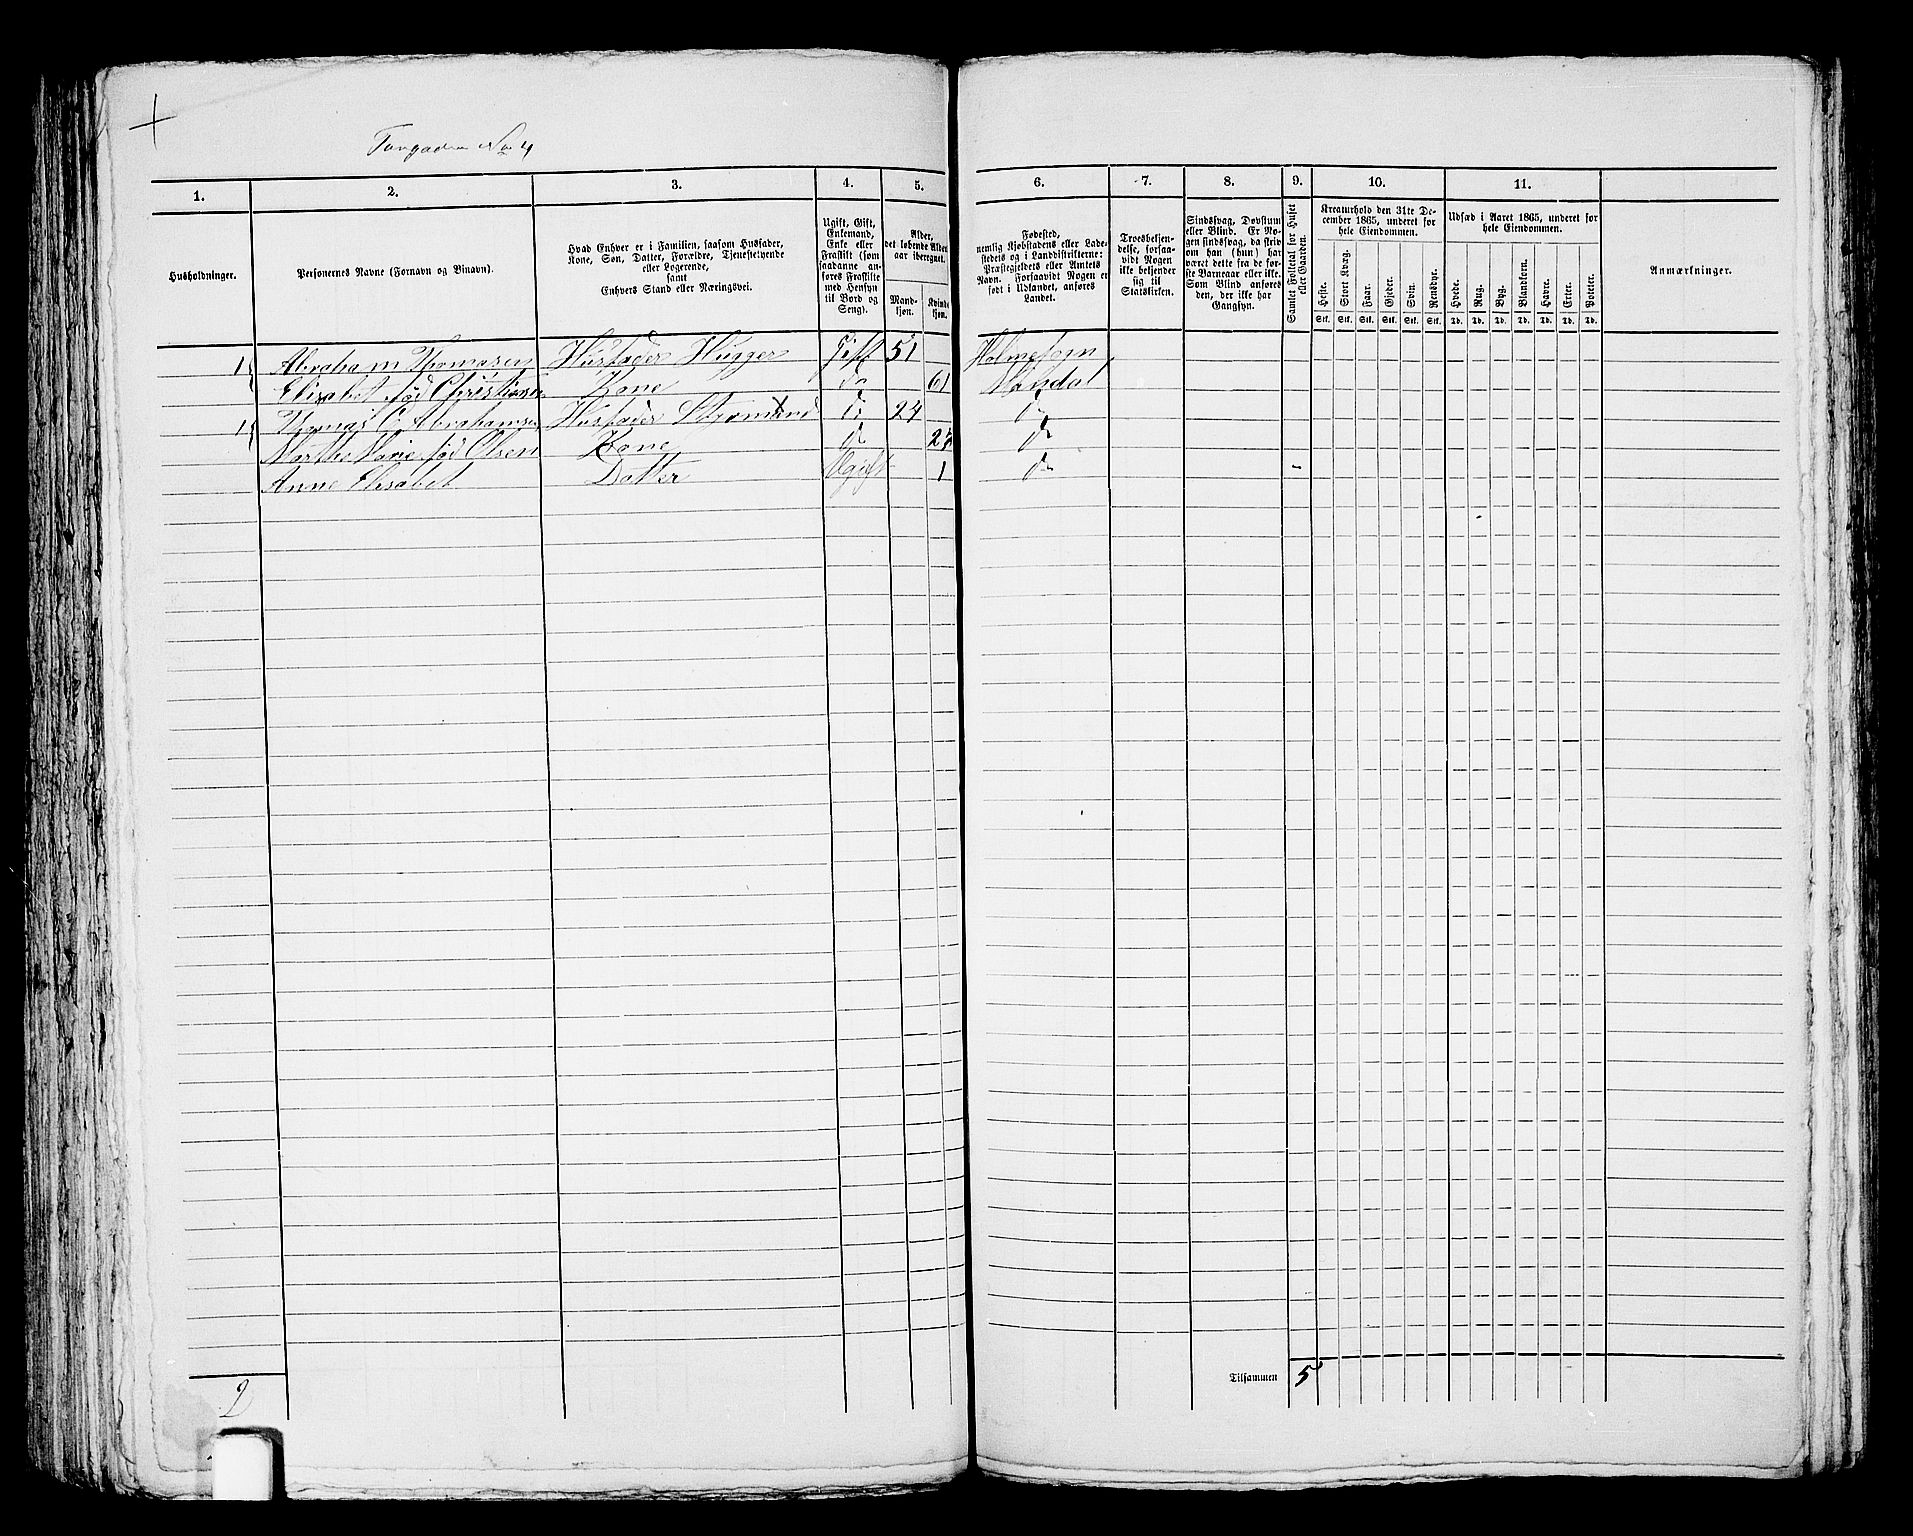 Tangaden No 4
1. 2. 3. 4. 5. 6. 7. 8. 9. 10. 11.
Husholdninger.
Personernes Navne (Fornavn og Binavn).
Hvad Enhver er i Familien, saasom Husfader,
Kone, Søn, Datter, Forældre, Tjenestetyende
eller Logerende,
samt
Enhvers Stand eller Næringsvei.
Ugift, Gift,
Enkemand,
Enke eller
Fraskilt (som
saadanne an-
føres Fraskilte
med Hensyn
til Bord og
Seng).
Alder,
det løbende Alders-
aar iberegnet.
Mand-
kjøn.
Kvinde-
kjøn.
Fødested,
nemlig Kjøbstadens eller Lade-
stedets og i Landdistrikterne:
Præstegjeldets eller Amtets
Navn. Forsaavidt Nogen er
født i Udlandet, anføres
Landet.
Troesbekjen-
delse, forsaa-
vidt Nogen
ikke bekjender
sig til
Statskirken.
Sindssvag, Døvstum
eller Blind. Er No-
gen sindssvag, da skriv
om han (hun) har
været dette fra de før-
ste Barneaar eller ikke.
Som Blind anføres
den, der ikke har
Gangsyn.
Samlet Folketal for Huset
eller Gaarden.
Kreaturhold den 31te De-
cember 1865, underet for
hele Eiendommen.
Heste. Stort Kvæg. Faar. Gjeder. Svin. Rensdyr.
Stk. Stk. Stk. Stk. Stk. Stk.
Udsæd i Aaret 1865, underet for
hele Eiendommen.
Hvede. Rug. Byg. Blandkorn. Havre. Erter. Poteter.
Td. Td. Td. Td. Td. Td. Td.
Anmærkninger.
1 Abraham Thomasen Husfader Hugger Gift 51 Holmesogn
Elisabet født Christiansen Kone do 61 Mandal
1 Thomas C Abrahamsen Husfader Styrmand do 24 do
Marthe Marie født Olsen Kone do do
Anne Elisabet Datter Ugift 1 do
2
Tilsammen 5